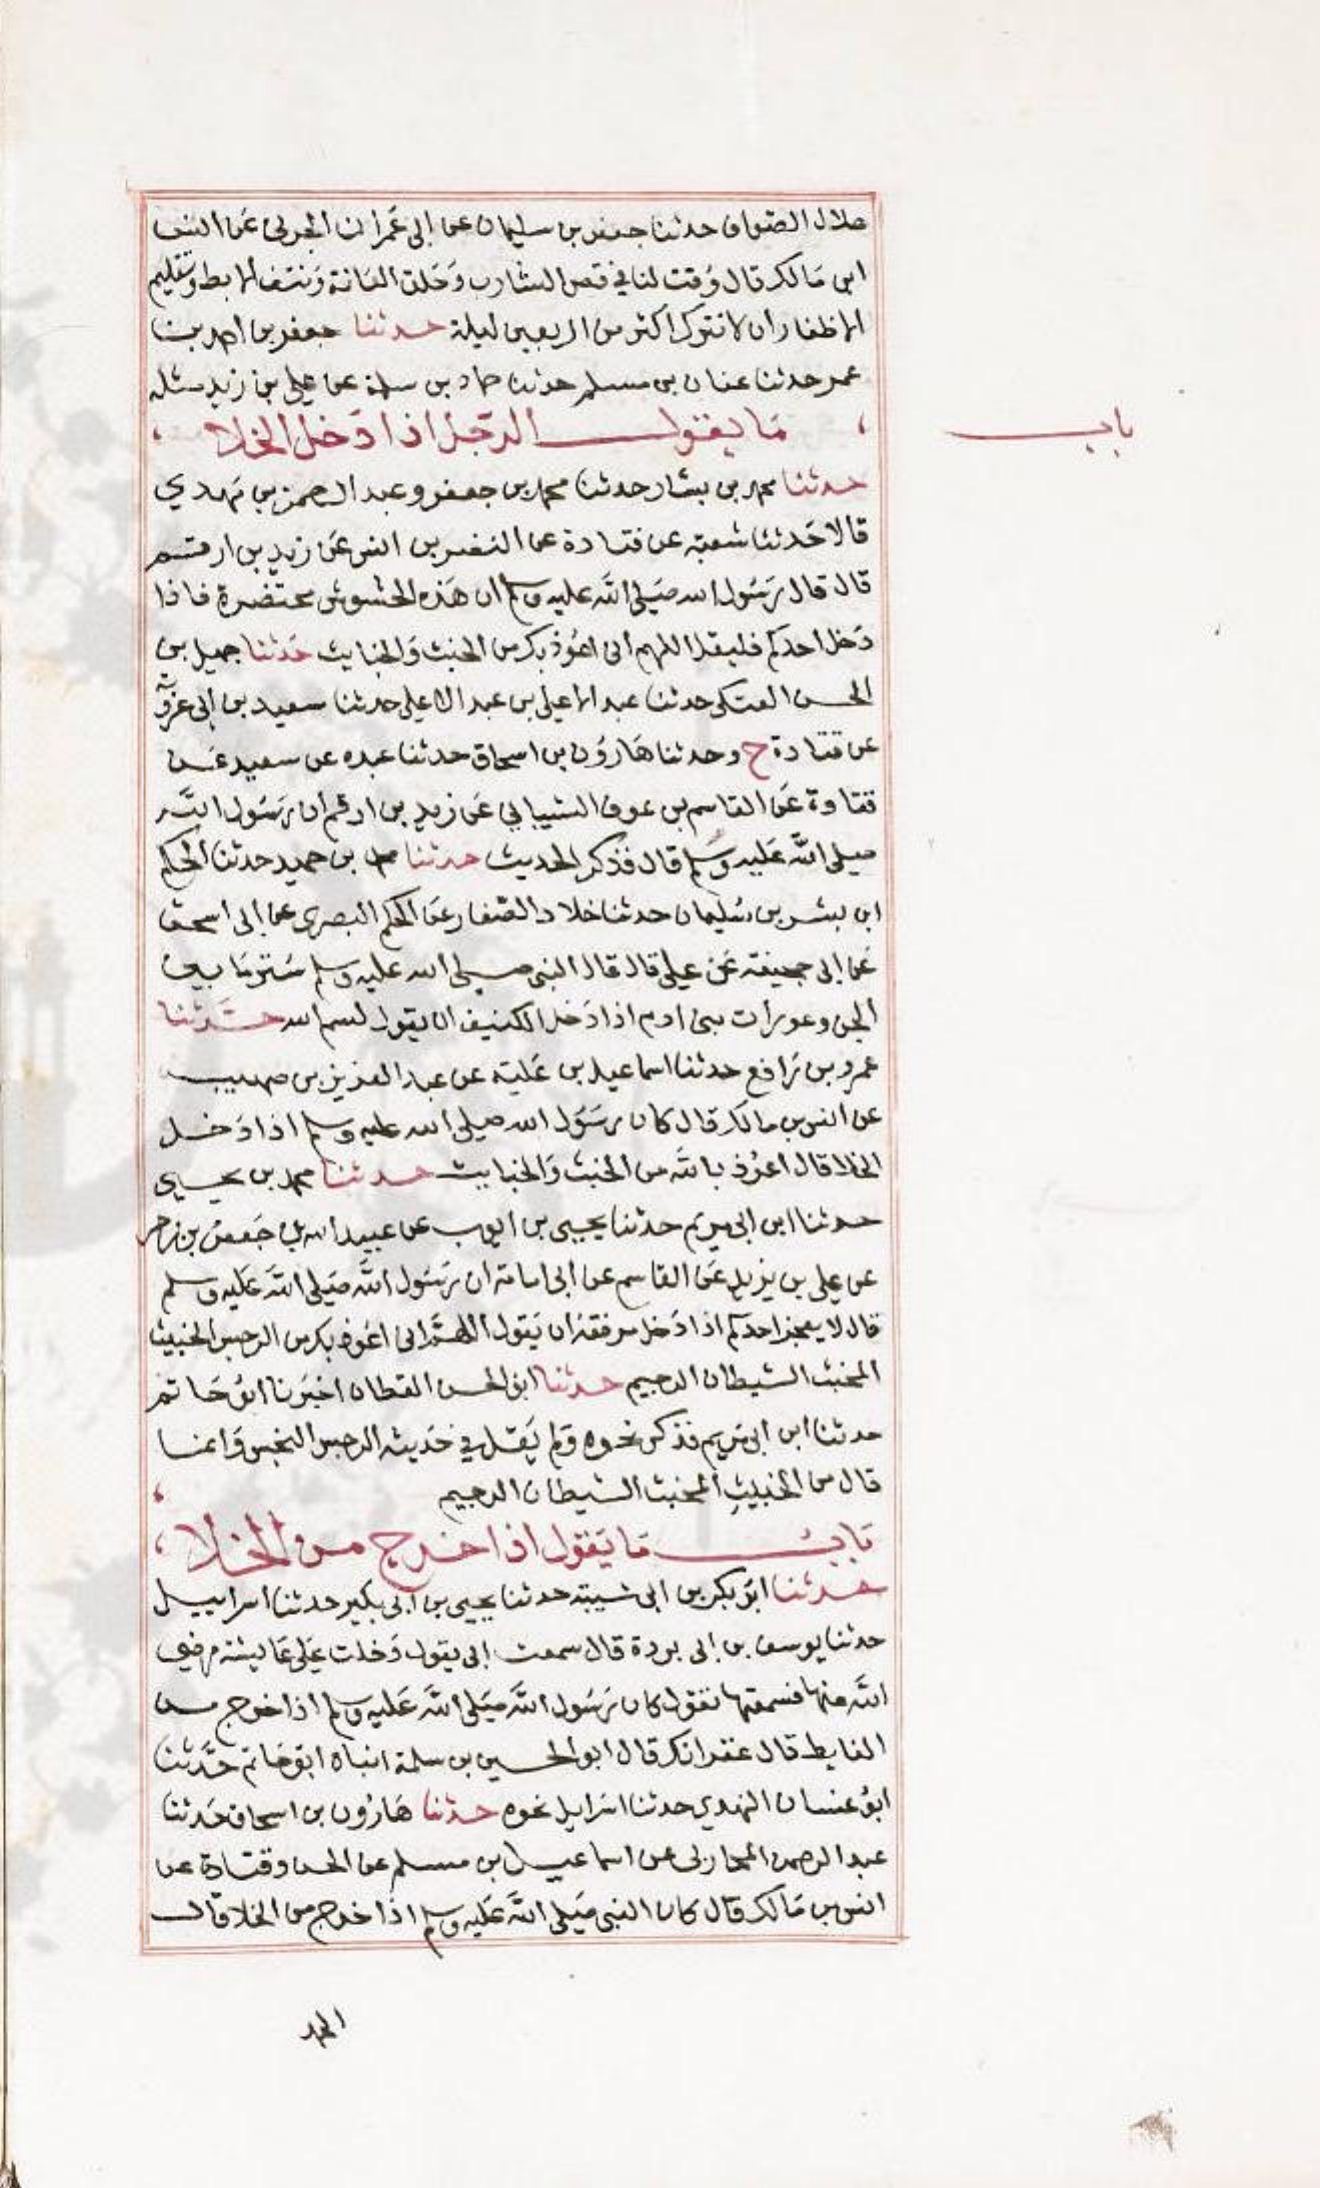 هلال الصواف حدثنا جعفر بن سليمان عن ابي عمران الجوني عن انس
ابن مالك قال وقت لنا في قص الشارب وحلق العانة ونتف الابط وتقليم
الاظفار ان لا نترك اكثر من اربعين ليلة حدثنا جعفر بن احمد بن
عمر حدثنا عفان بن مسلم حدثنا حماد بن سلمة عن علي بن زيد مثله
باب
ما يقول الرجل اذا دخل الخلا
حدثنا محمد بن بشار حدثنا محمد بن جعفر وعبد الرحمن بن مهدي
قالا حدثنا شعبة عن قتادة عن النضر بن انس عن زيد بن ارقم
قال قال رسول الله صلى الله عليه وسلم ان هذه الحشوش محتضرة فاذا
دخل احدكم فليقل اللهم اني اعوذ بك من الخبث والخبايث حدثنا جميل بن
الحسن العتكي حدثنا عبد الاعلى بن عبد الاعلى حدثنا سعيد بن ابي عروبة
عن قتادة ح وحدثنا هارون بن اسحاق حدثنا عبده عن سعيد عن
قتادة عن القاسم بن عوف الشيباني عن زيد بن ارقم ان رسول الله
صلى الله عليه وسلم قال فذكر الحديث حدثنا محمد بن حميد حدثنا الحكم
ابن بشر بن سليمان حدثنا خلاد الصفار عن الحكم البصري عن ابي اسحق
عن ابي جحيفة عن علي قال قال النبي صلى الله عليه وسلم ستر ما بين
الجن وعورات بني ادم اذا دخل الكنيف ان يقول بسم الله حدثنا
عمرو بن رافع حدثنا اسماعيل بن علية عن عبد العزيز بن صهيب
عن انس بن مالك قال كان رسول الله صلى الله عليه وسلم اذا دخل
الخلا قال اعوذ بالله من الخبث والخبايث حدثنا محمد بن يحيى
حدثنا ابن ابي مريم حدثنا يحيى بن ايوب عن عبيد الله بن جعفر بن زحر
عن علي بن يزيد عن القاسم عن ابي امامة ان رسول الله صلى الله عليه وسلم
قال لا يعجز احدكم اذا دخل مرفقه ان يقول اللهم اني اعوذ بك من الرجس الخبيث
المخبث الشيطان الرجيم حدثنا ابو الحسن القطان اخبرنا ابو حاتم
حدثنا ابن ابي مريم فذكر نحوه ولم يقل في حديثه الرجس النجس وانما
قال من الخبيث المخبث الشيطان الرجيم
باب ما يقول اذا خرج من الخلا
حدثنا ابو بكر بن ابي شيبة حدثنا يحيى بن ابي بكير حدثنا اسراييل
حدثنا يوسف بن ابي بردة قال سمعت ابي يقول دخلت على عايشة رضي
الله عنها فسمعتها تقول كان رسول الله صلى الله عليه وسلم اذا خرج من
الغايط قال غفرانك قال ابو الحسين بن سلمة انباه ابو حاتم حدثنا
ابو غسان النهدي حدثنا اسرايل نحوه حدثنا هارون بن اسحاق حدثنا
عبد الرحمن المحاربي عن اسماعيل بن مسلم عن الحسن وقتادة عن
انس بن مالك قال كان النبي صلى الله عليه وسلم اذا خرج من الخلا قال
الحمد